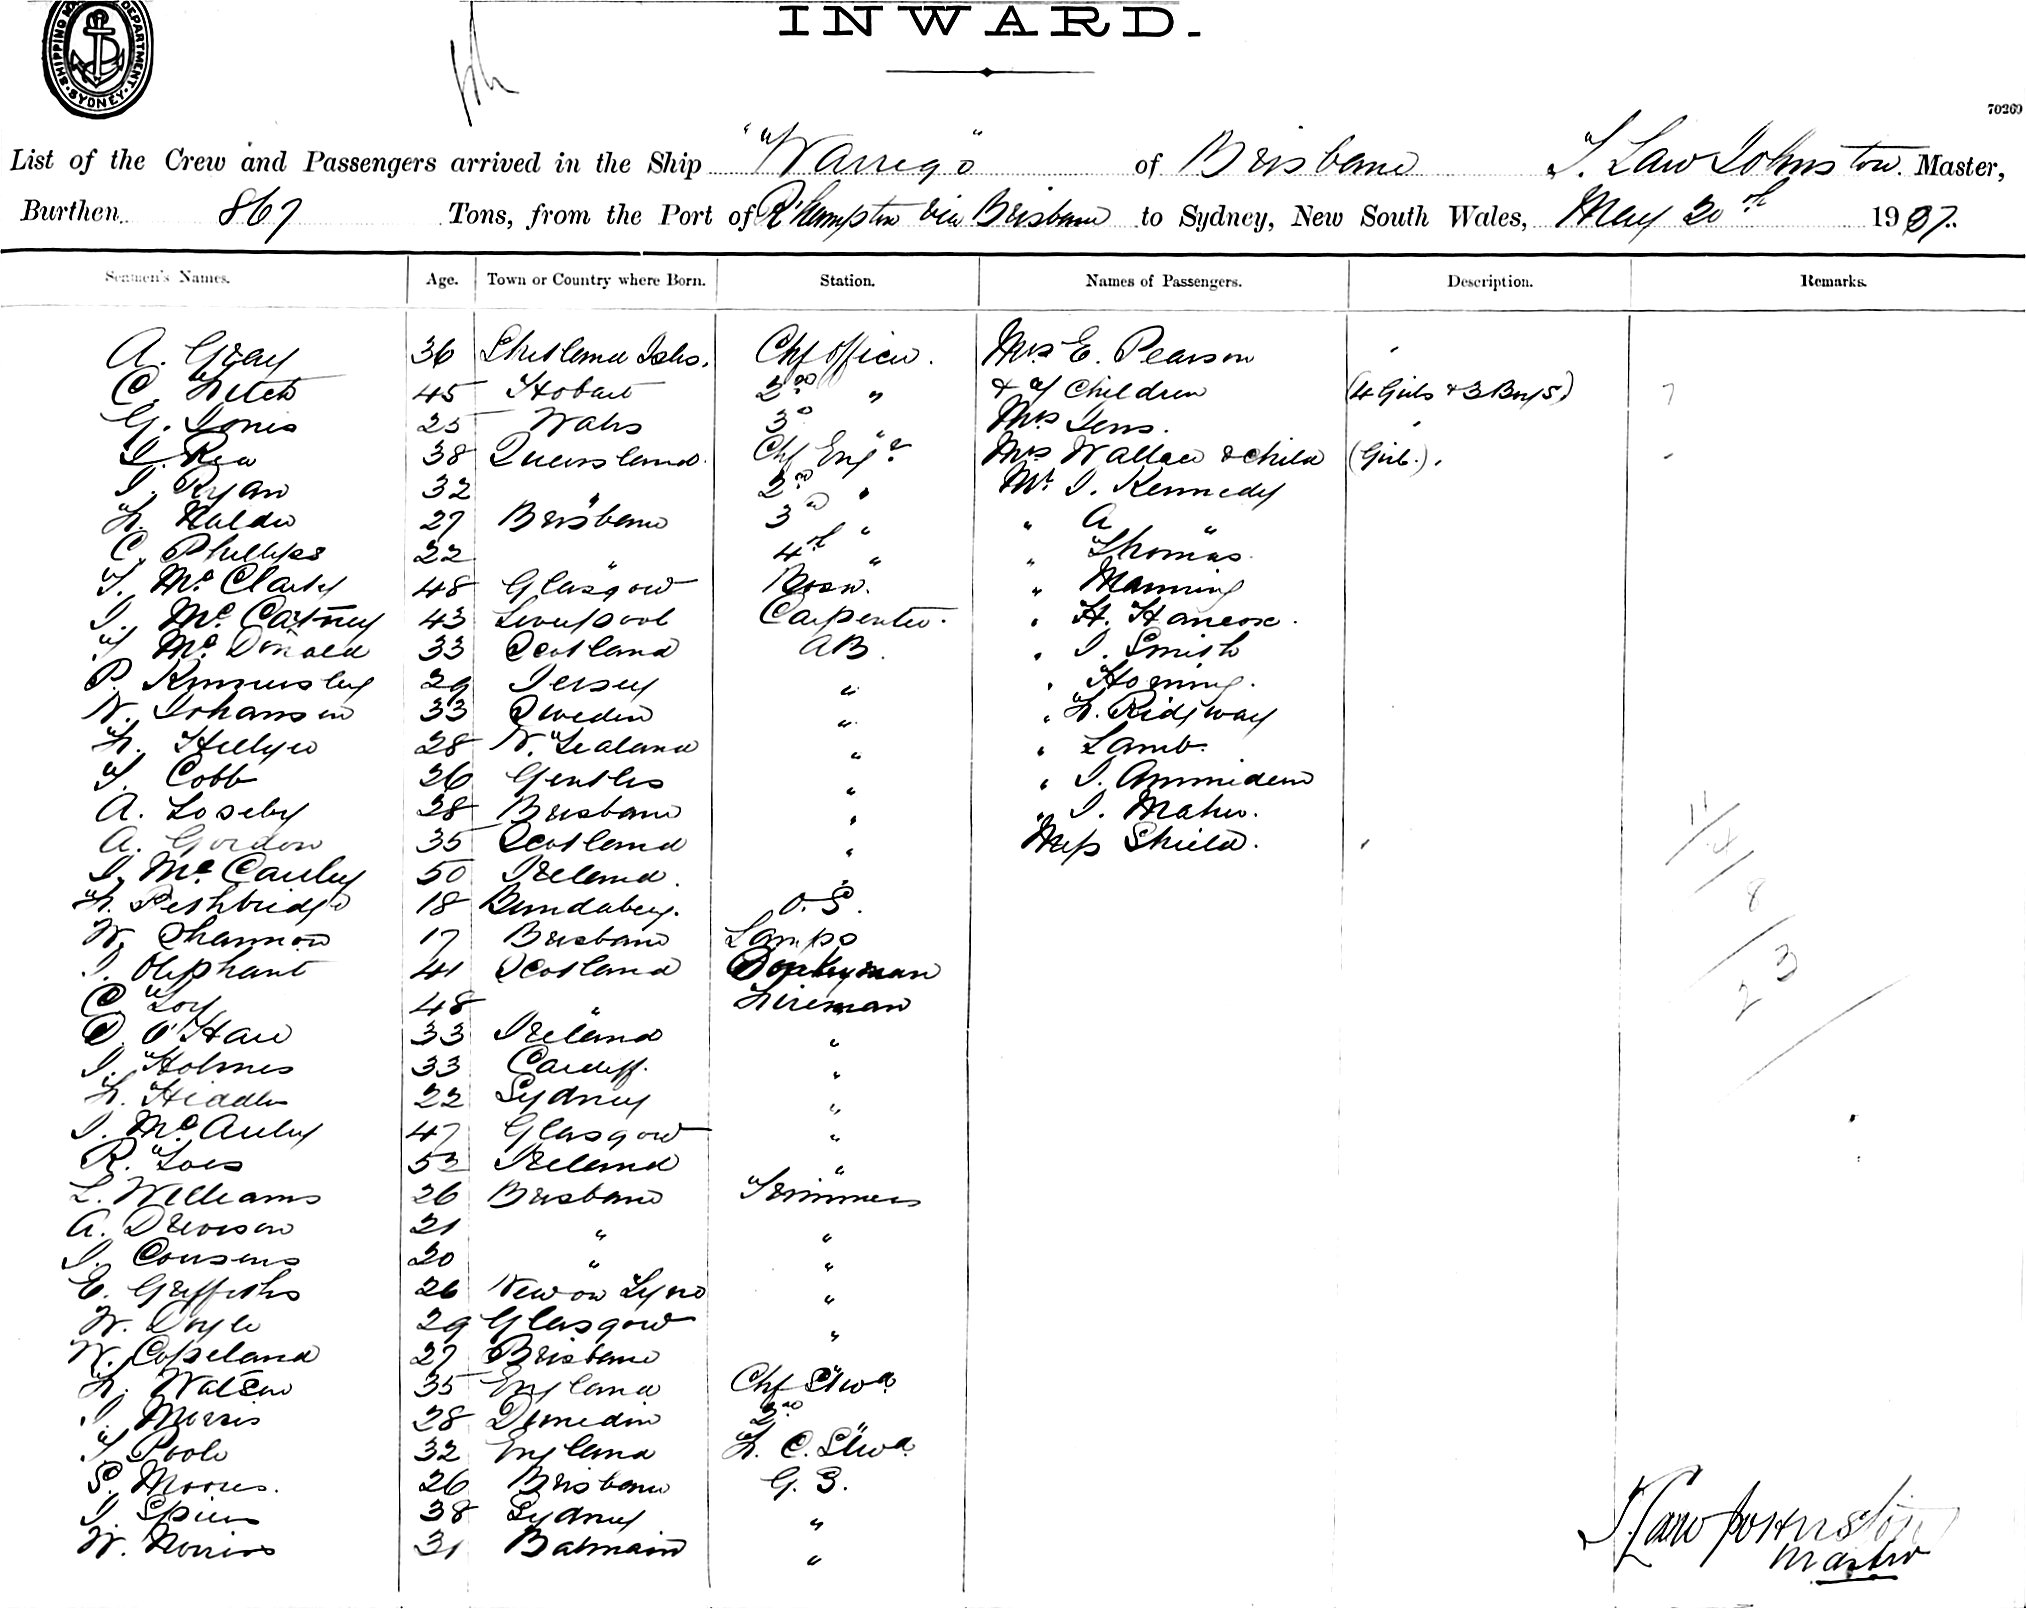 SHIPPING MASTER'S DEPARTMENT. SYDNEY.
INWARD.
70269
List of the Crew and Passengers arrived in the Ship "Warrego" of Brisbane T. Law Johnston. Master,
Burthen 867 Tons, from the Port of R'hampton via Brisbane to Sydney, New South Wales, May 20th 1907.
Seamen's Names. Age. Town or Country where Born. Station. Names of Passengers. Description. Remarks.
A. Gray 36 Shetland Isles. Chf officer. Mrs E. Pearson
C. 45 Hobart 2nd " & 7 Children (4 Girls & 3 Boys)
G. Jones 25 Wales 3d " Mrs Jens.
J. Rea 38 Queensland. Chf Engr Mrs Wallace & child (Girl.).
J. Ryan 32 " 2nd " Mr J. Kennedy
F. 27 Brisbane 3d " " A "
C. Phillips 22 " 4th " " Thomas.
T. Mc Clarty 48 Glasgow Bosn. " Manning
J. Mc Cartney 43 Liverpool Carpenter. " H. Hancox.
T. Mc Donald 33 Scotland AB. " J. Smith
P. Kinnersley 29 Jersey " " Horning.
N. Johansen 33 Sweden " " F. Ridgway
F. Hillyer 28 N. Zealand " " Lamb.
T. Cobb 26 " " J.
A. Loseby 28 Brisbane " " J. Maher.
A. Gordon 35 Scotland " Miss Shield.
J. Mc Cauley 50 Ireland. "
F. Pethbridge 18 Bundaberg. O.S.
W. Shannon 17 Brisbane Lamps
J. Oliphant 41 Scotland Donkeyman
C. Foy 48 " Fireman
D. O'Hare 33 Ireland "
J. Holmes 33 Cardiff. "
F. Hiddle 22 Sydney "
J. Mc Auley 47 Glasgow "
R. 53 Ireland "
L. Williams 26 Brisbane Trimmers
A. Drevison 21 " "
J. Cousens 20 " "
E. Griffiths 26 New on Tyne "
W. Doyle 29 Glasgow "
W. Copeland 27 Brisbane "
F. Watson 35 England Chf Stwd
J. Morris 28 Dunedin 2nd "
T. Poole 32 England F. C. Stwd
S. Moores. 26 Brisbane G. S.
J. Spiers 38 Sydney "
W. Norris 31 Balmain "
11
4
8
23
T. Law Johnston
Master